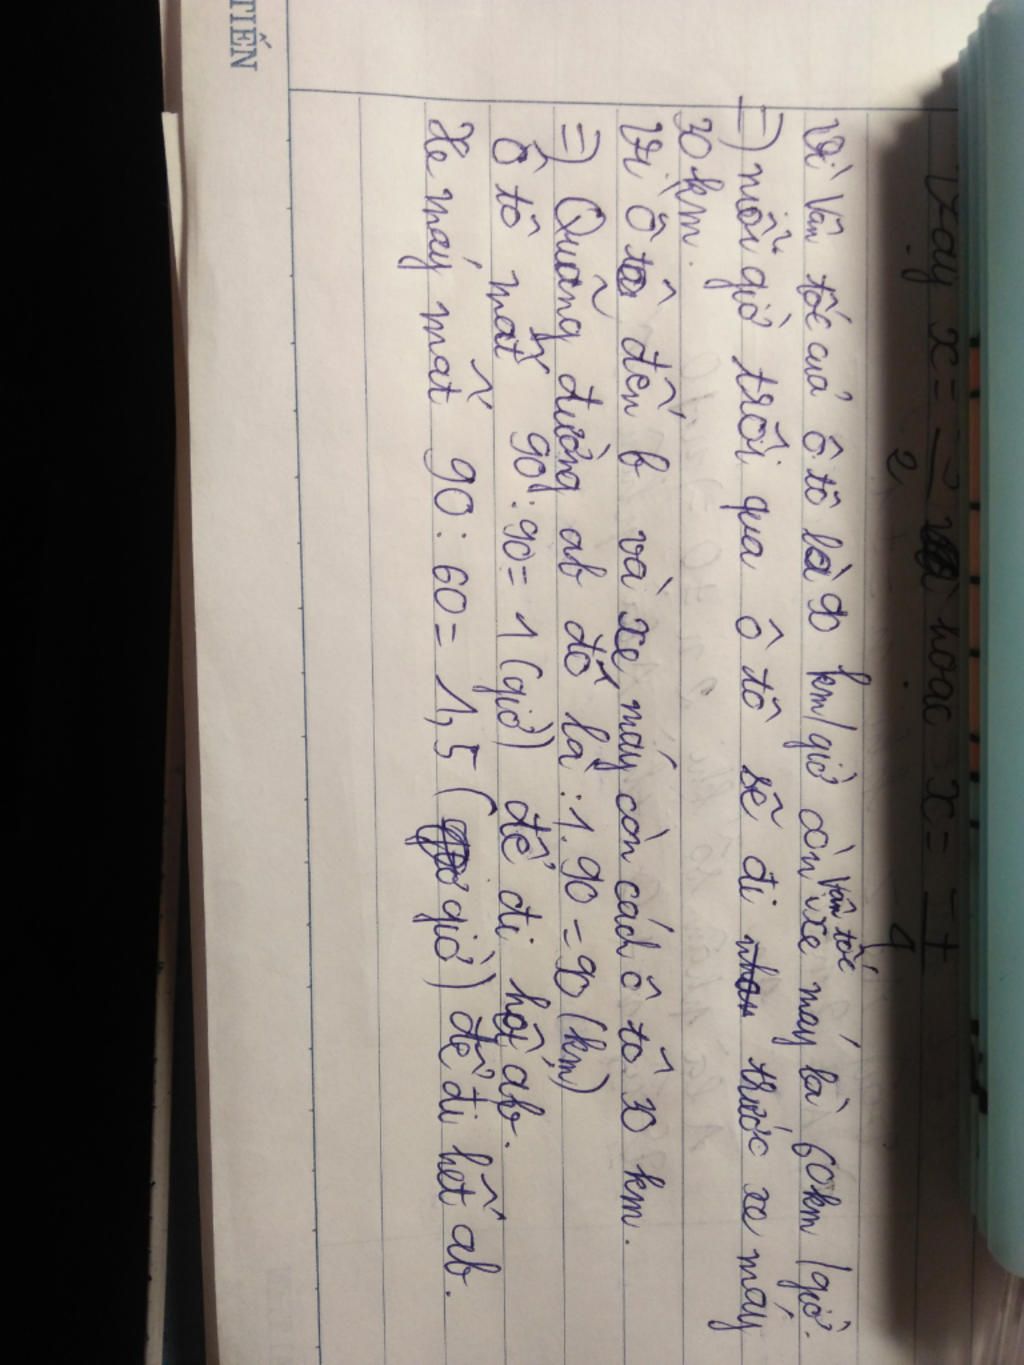 Vậy x = hoặc x =
2 4
Vì Vân tốc của ô tô là 90 km/giờ còn vân tốc xe máy là 60km/giờ.
=) mỗi giờ trôi qua ô tô sẽ đi trước xe máy
30 km.
Vì ô tô đến b và xe máy còn cách ô tô 30 km.
=) Quãng đường ab đó là : 1. 90 = 90 (km)
Ô tô mất 90 : 90 = 1 (giờ) để đi hết ab.
Xe máy mất 90 : 60 = 1,5 (giờ) để đi hết ab.
TIẾN